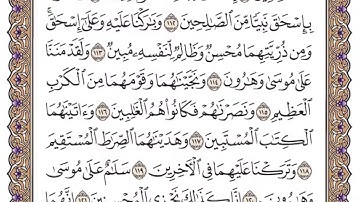 بِإِسْحَٰقَ نَبِيًّا مِّنَ ٱلصَّٰلِحِينَ ١١٢ وَبَٰرَكْنَا عَلَيْهِ وَعَلَىٰٓ إِسْحَٰقَۚ
وَمِن ذُرِّيَّتِهِمَا مُحْسِنٌ وَظَالِمٌ لِّنَفْسِهِۦ مُبِينٌ ١١٣ وَلَقَدْ مَنَنَّا
عَلَىٰ مُوسَىٰ وَهَٰرُونَ ١١٤ وَنَجَّيْنَٰهُمَا وَقَوْمَهُمَا مِنَ ٱلْكَرْبِ
ٱلْعَظِيمِ ١١٥ وَنَصَرْنَٰهُمْ فَكَانُوا۟ هُمُ ٱلْغَٰلِبِينَ ١١٦ وَءَاتَيْنَٰهُمَا
ٱلْكِتَٰبَ ٱلْمُسْتَبِينَ ١١٧ وَهَدَيْنَٰهُمَا ٱلصِّرَٰطَ ٱلْمُسْتَقِيمَ
١١٨ وَتَرَكْنَا عَلَيْهِمَا فِى ٱلْءَاخِرِينَ ١١٩ سَلَٰمٌ عَلَىٰ مُوسَىٰ
وَهَٰرُونَ ١٢٠ إِنَّا كَذَٰلِكَ نَجْزِى ٱلْمُحْسِنِينَ ١٢١ إِنَّهُمَا